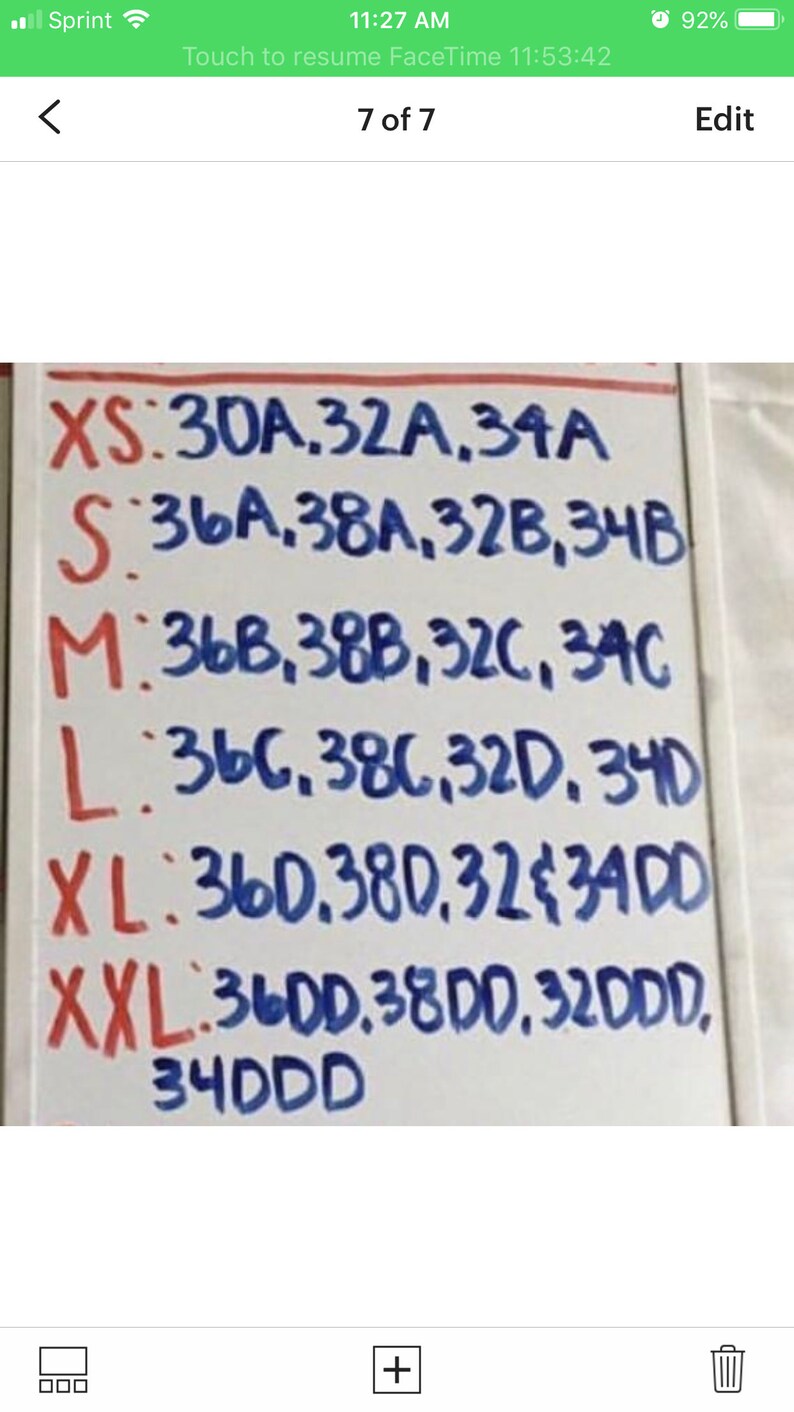 Sprint 11:27 AM 92%
Touch to resume FaceTime 11:53:42
7 of 7 Edit
XS: 30A, 32A, 34A
S: 36A, 38A, 32B, 34B
M: 36B, 38B, 32C, 34C
L: 36C, 38C, 32D, 34D
XL: 36D, 38D, 32 & 34DD
XXL: 36DD, 38DD, 32DDD,
34DDD